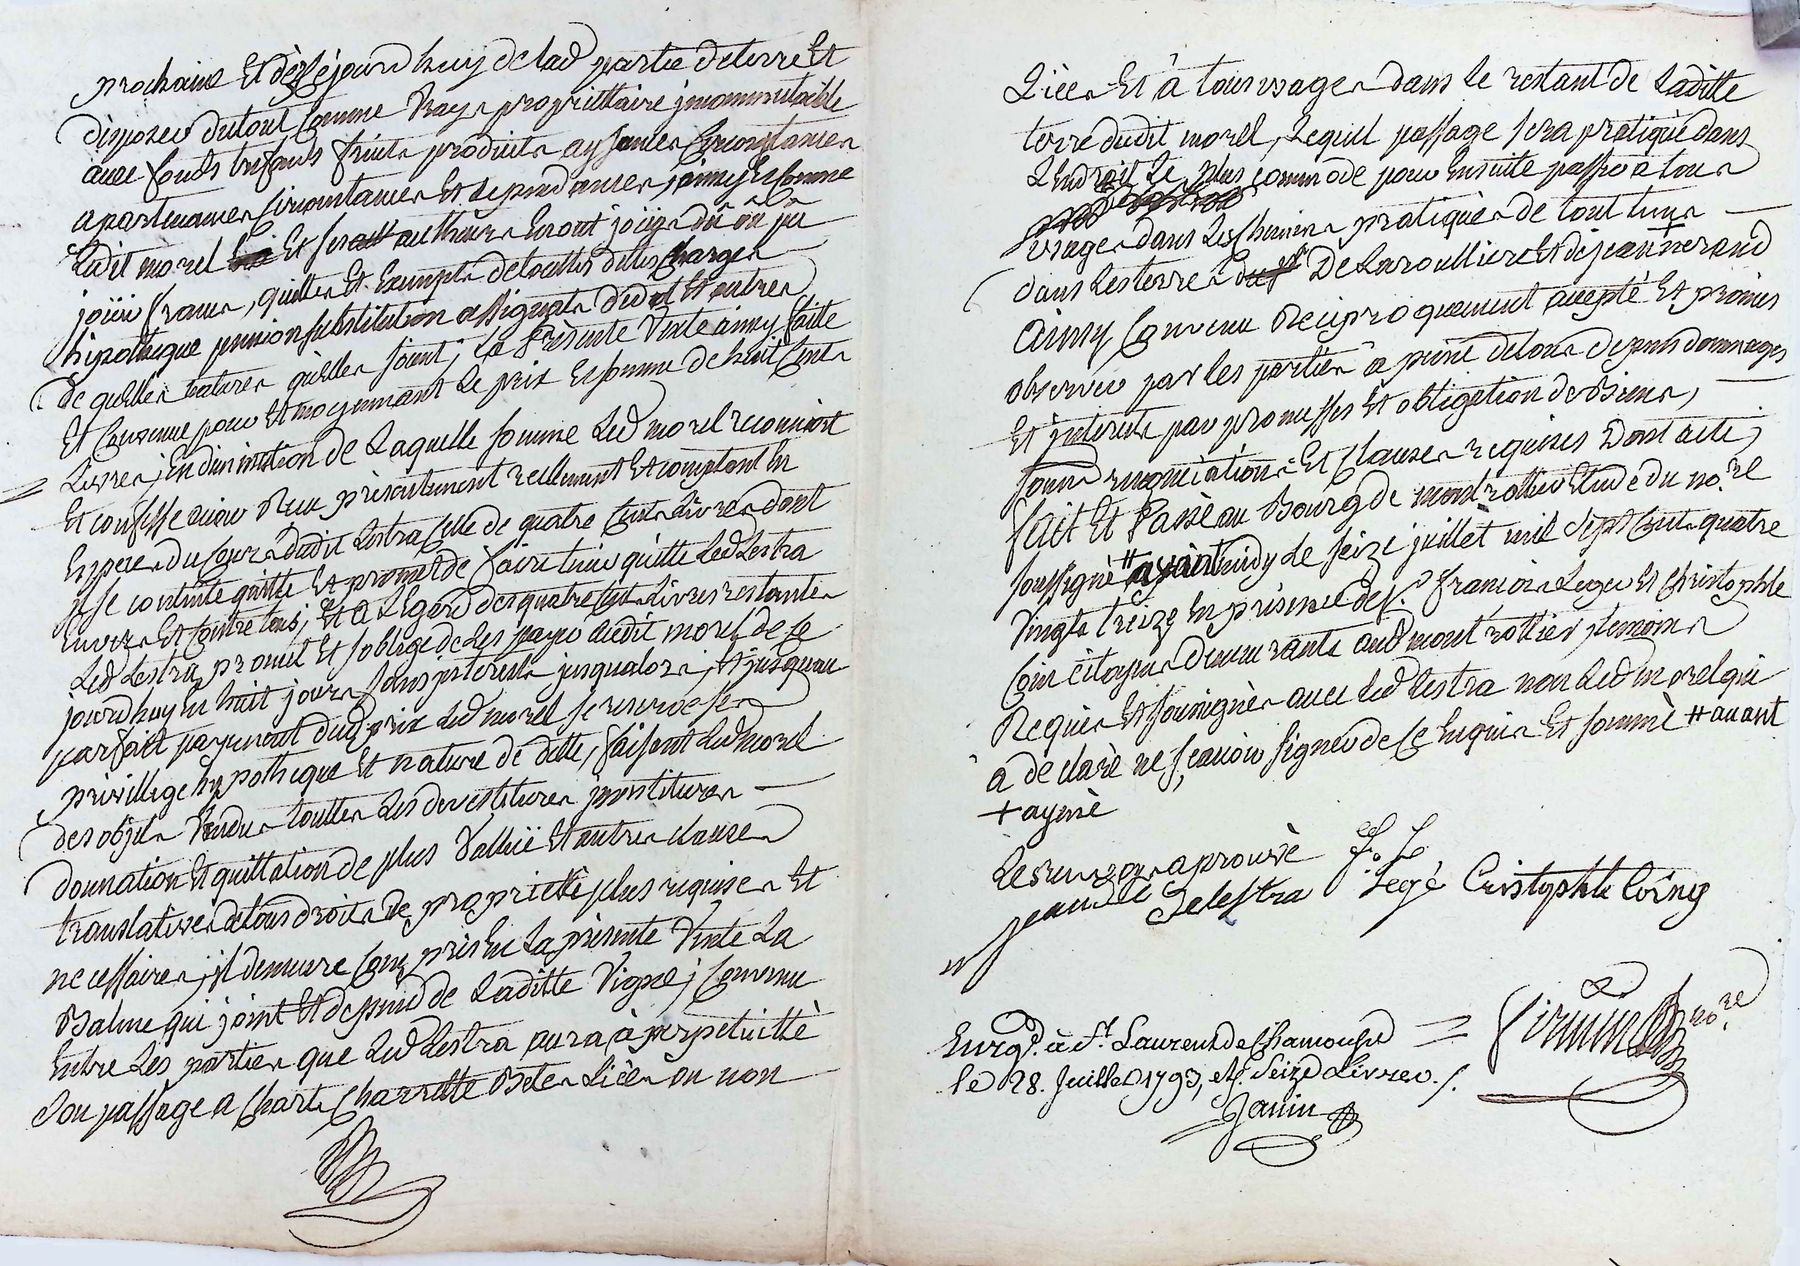 prochaine Et dès ce jourd huy de lad partie de terre Et
disposer du tout Comme Vray propriettaire jncommutable
avec fonds trefonds fruits produits aysances Circonstances
apartenances Circonstances Et dependances, ainsy Et Comme
Ledit morel Et ses autheurs En ont joüis dû ou pû
joüir francs, quittes Et Exempts de touttes dettes Charges
hipotheque pension substitution assignats dud et autres
de quelles natures quelles soient; La presente Vente ainsy faitte
Et Convenue pour Et moyennant Le prix Et somme de huit Cents
Livres; En diminution de Laquelle somme Led morel reconnoit
Et confesse avoir Reçu presentement reellement Et comptant En
Especes du Cours dudit Lestra Celle de quatre Cents Livres dont
jl se contente quitte Et promet de faire tenir quitte Led Lestra
Envers Et Contre tous; Et a L'Egard des quatre Cents Livres restantes
Led Lestra promet Et soblige de Les payer audit morel de Ce
jourdhuy En huit jours sans jnterets jusqualors; Et jusquau
parfait payement dud prix Led morel se reserve ses
privillege hypotheque Et nature de dette, faisant Led morel
des objets Vendus touttes Les devestitures jnvestitures
donnation Et quittation de plus Vallüe Et autres clauses
translatives de tous droits De proprietté plus requises Et
necessaires; jl demeure Compris En La presente Vente La
Balme qui joint Et depend de Laditte Vigne; Convenu
Entre Les parties que Led Lestra aura à perpetuitté
son passage a Chart Charrette Betes Liées ou non
Liées Et à tous usages dans Le restant de Laditte
terre dudit morel, Lequel passage sera pratiqué dans
L'Endroit Le plus commode pour Ensuite passer à tous
usages dans Les Chemins pratiqués de tout tems
dans Les terres De Laroulliere Et de jean + nerand
Ainsy Convenu Reciproquement accepté Et promis
observer par les parties à peine de tous depens dommages
Et jnterets par promesses Et obligation de Biens,
soum renonciations Et Clauses requises Dont acte;
fait Et Passé au Bourg de montrottier Etude du nore
soussigné # midy Le seize juillet mil sept Cents quatre
Vingts treize En presence de s. francois Leger Et Christophle
Coin citoyens demeurants aud montrottier, temoins
Requis Et soussignés avec Led Lestra non Led morel qui
a declaré ne sçavoir signer de Ce Enquis Et sommé # avant
+ aymé
Les renvoys aprouvé
jean De Lestra
Legé
Cristophle Coing
Firmin nore
Enregd. à St. Laurent de Chamousset
le 28. Juillet 1793, Rt. Seize Livres.
Janin